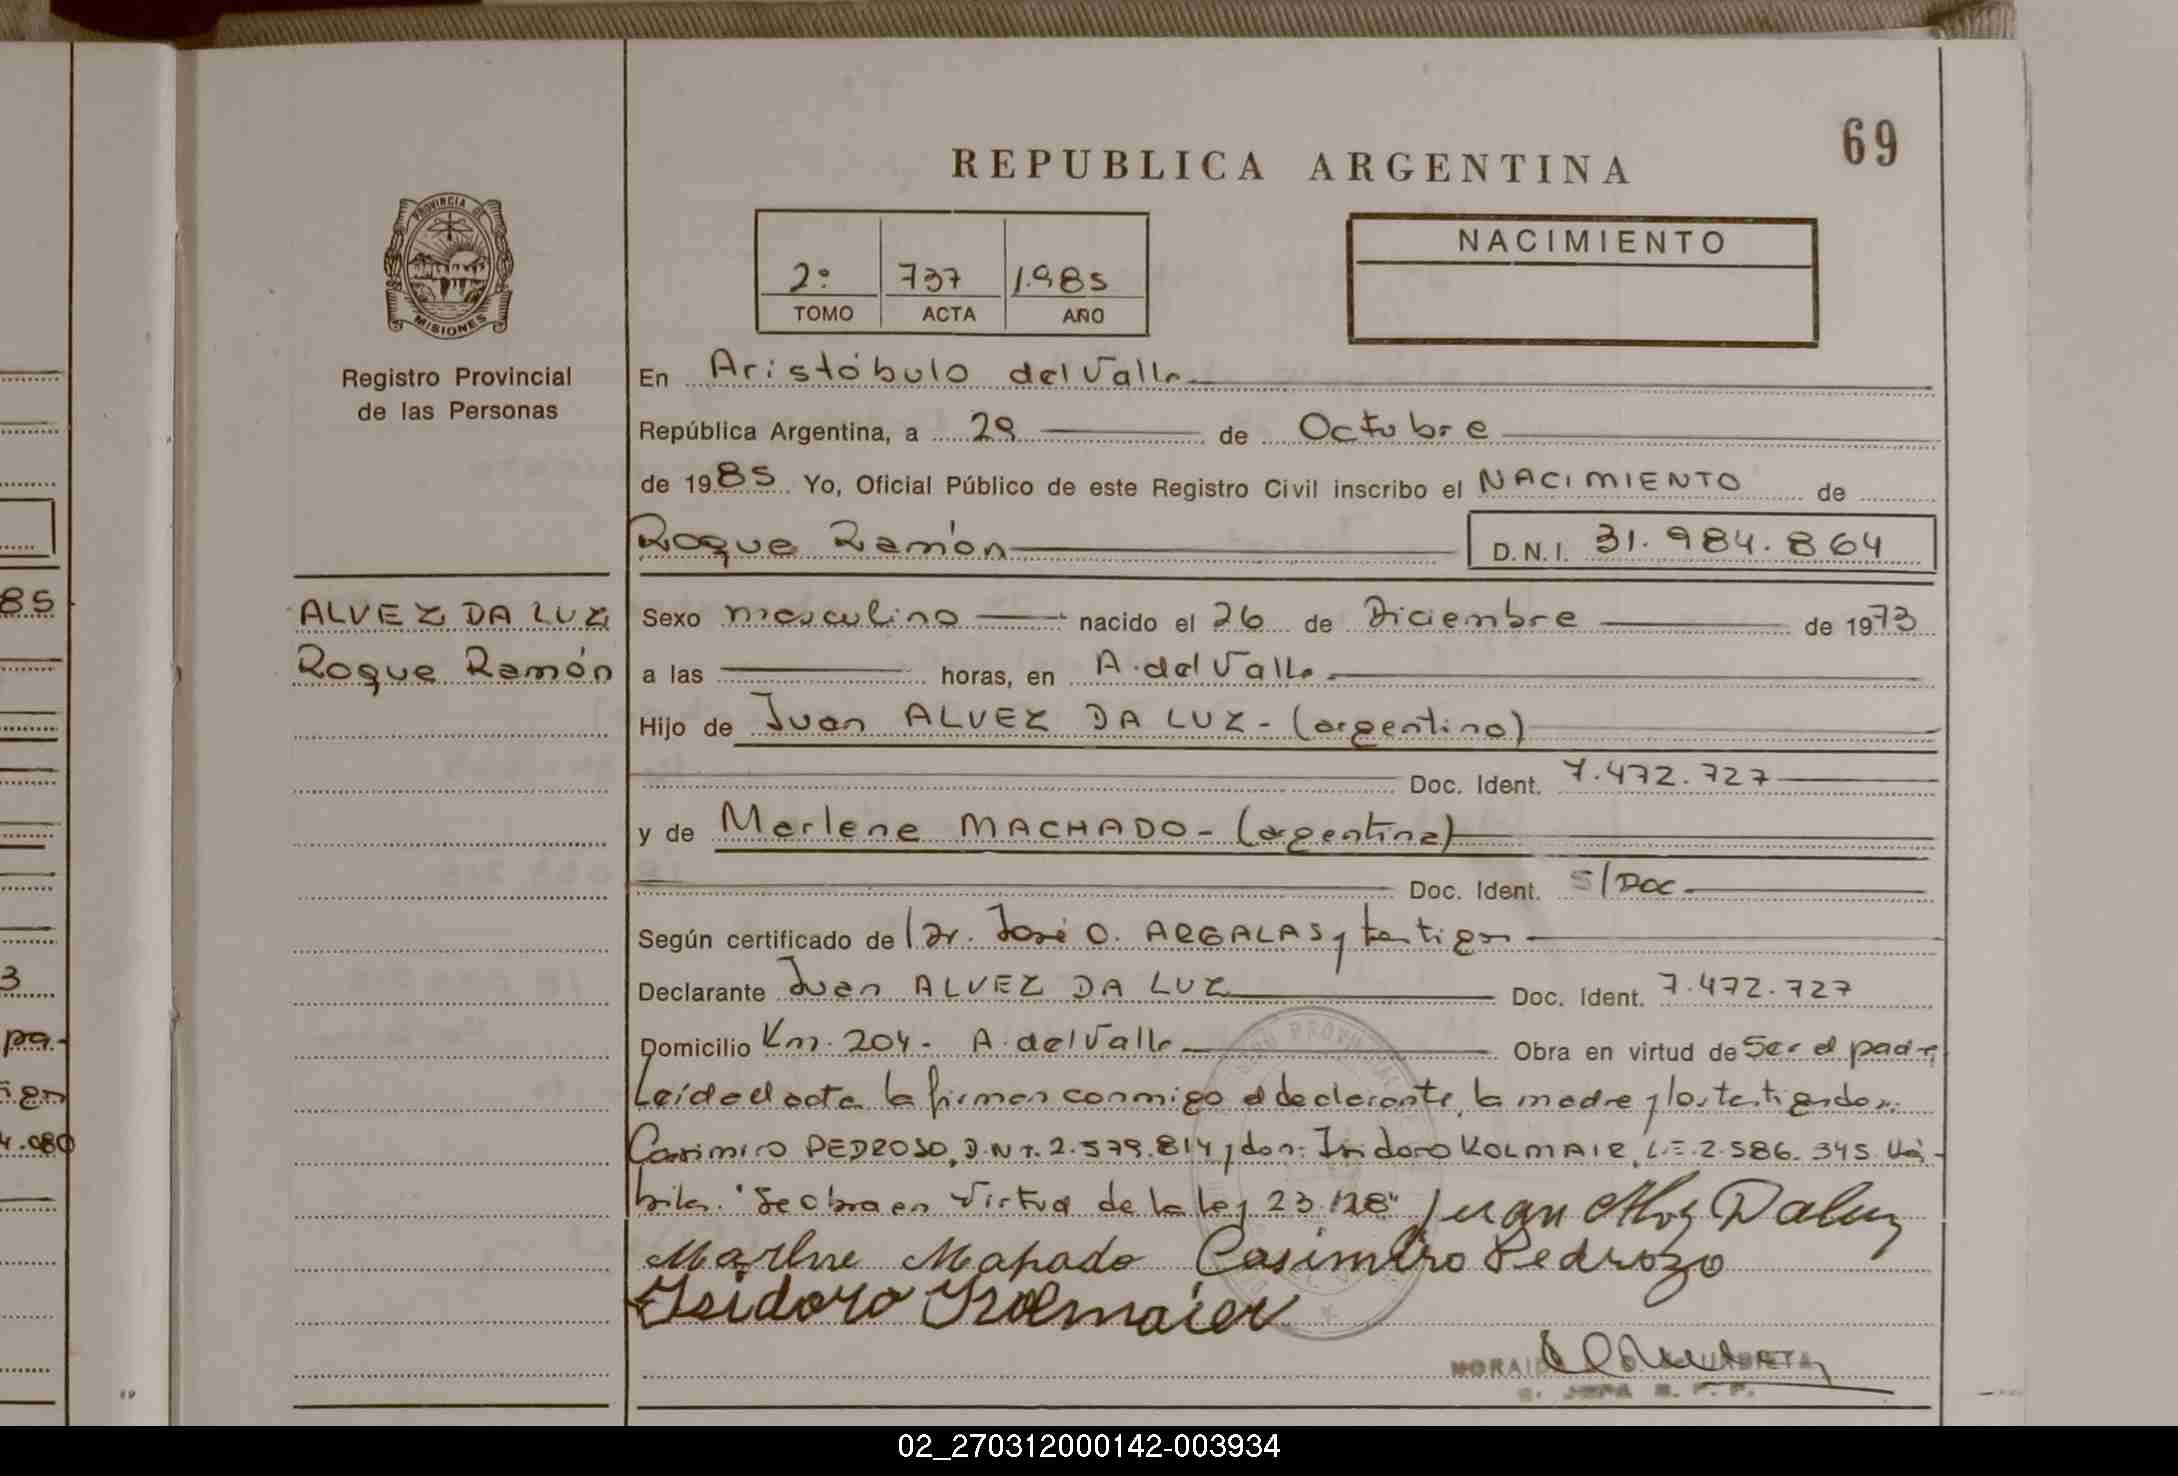 69
REPUBLICA ARGENTINA
PROVINCIA DE
MISIONES
Registro Provincial
de las Personas
2º 737 1.985
TOMO ACTA AÑO
NACIMIENTO
En Aristóbulo del Valle
República Argentina, a 29 de Octubre
de 1985 Yo, Oficial Público de este Registro Civil inscribo el NACIMIENTO de
Roque Ramón D.N.I. 31.984.864
ALVEZ DA LUZ
Roque Ramón
Sexo masculino nacido el 26 de Diciembre de 1973
a las horas, en A. del Valle
Hijo de Juan ALVEZ DA LUZ - (argentino)
Doc. Ident. 7.472.727
y de Marlene MACHADO - (argentina)
Doc. Ident. S/DOC
Según certificado de Dr. José O. ARGALAS y testigos
Declarante Juan ALVEZ DA LUZ Doc. Ident. 7.472.727
Domicilio Km. 204 - A. del Valle Obra en virtud de Ser el padre
Leída el acta la firman conmigo el declarante, la madre y los testigos don:
Casimiro PEDROSO, D.N.I. 2.579.814 y don: Isidoro KOLMAIR, L.E. 2.586.345 Há-
biles. "Se obra en Virtud de la Ley 23.128" Juan Alvez Daluz
Marlne Mahado Casimiro Pedrozo
Isidoro Kolmaier
85
3
pa-
4.080
02_270312000142-003934